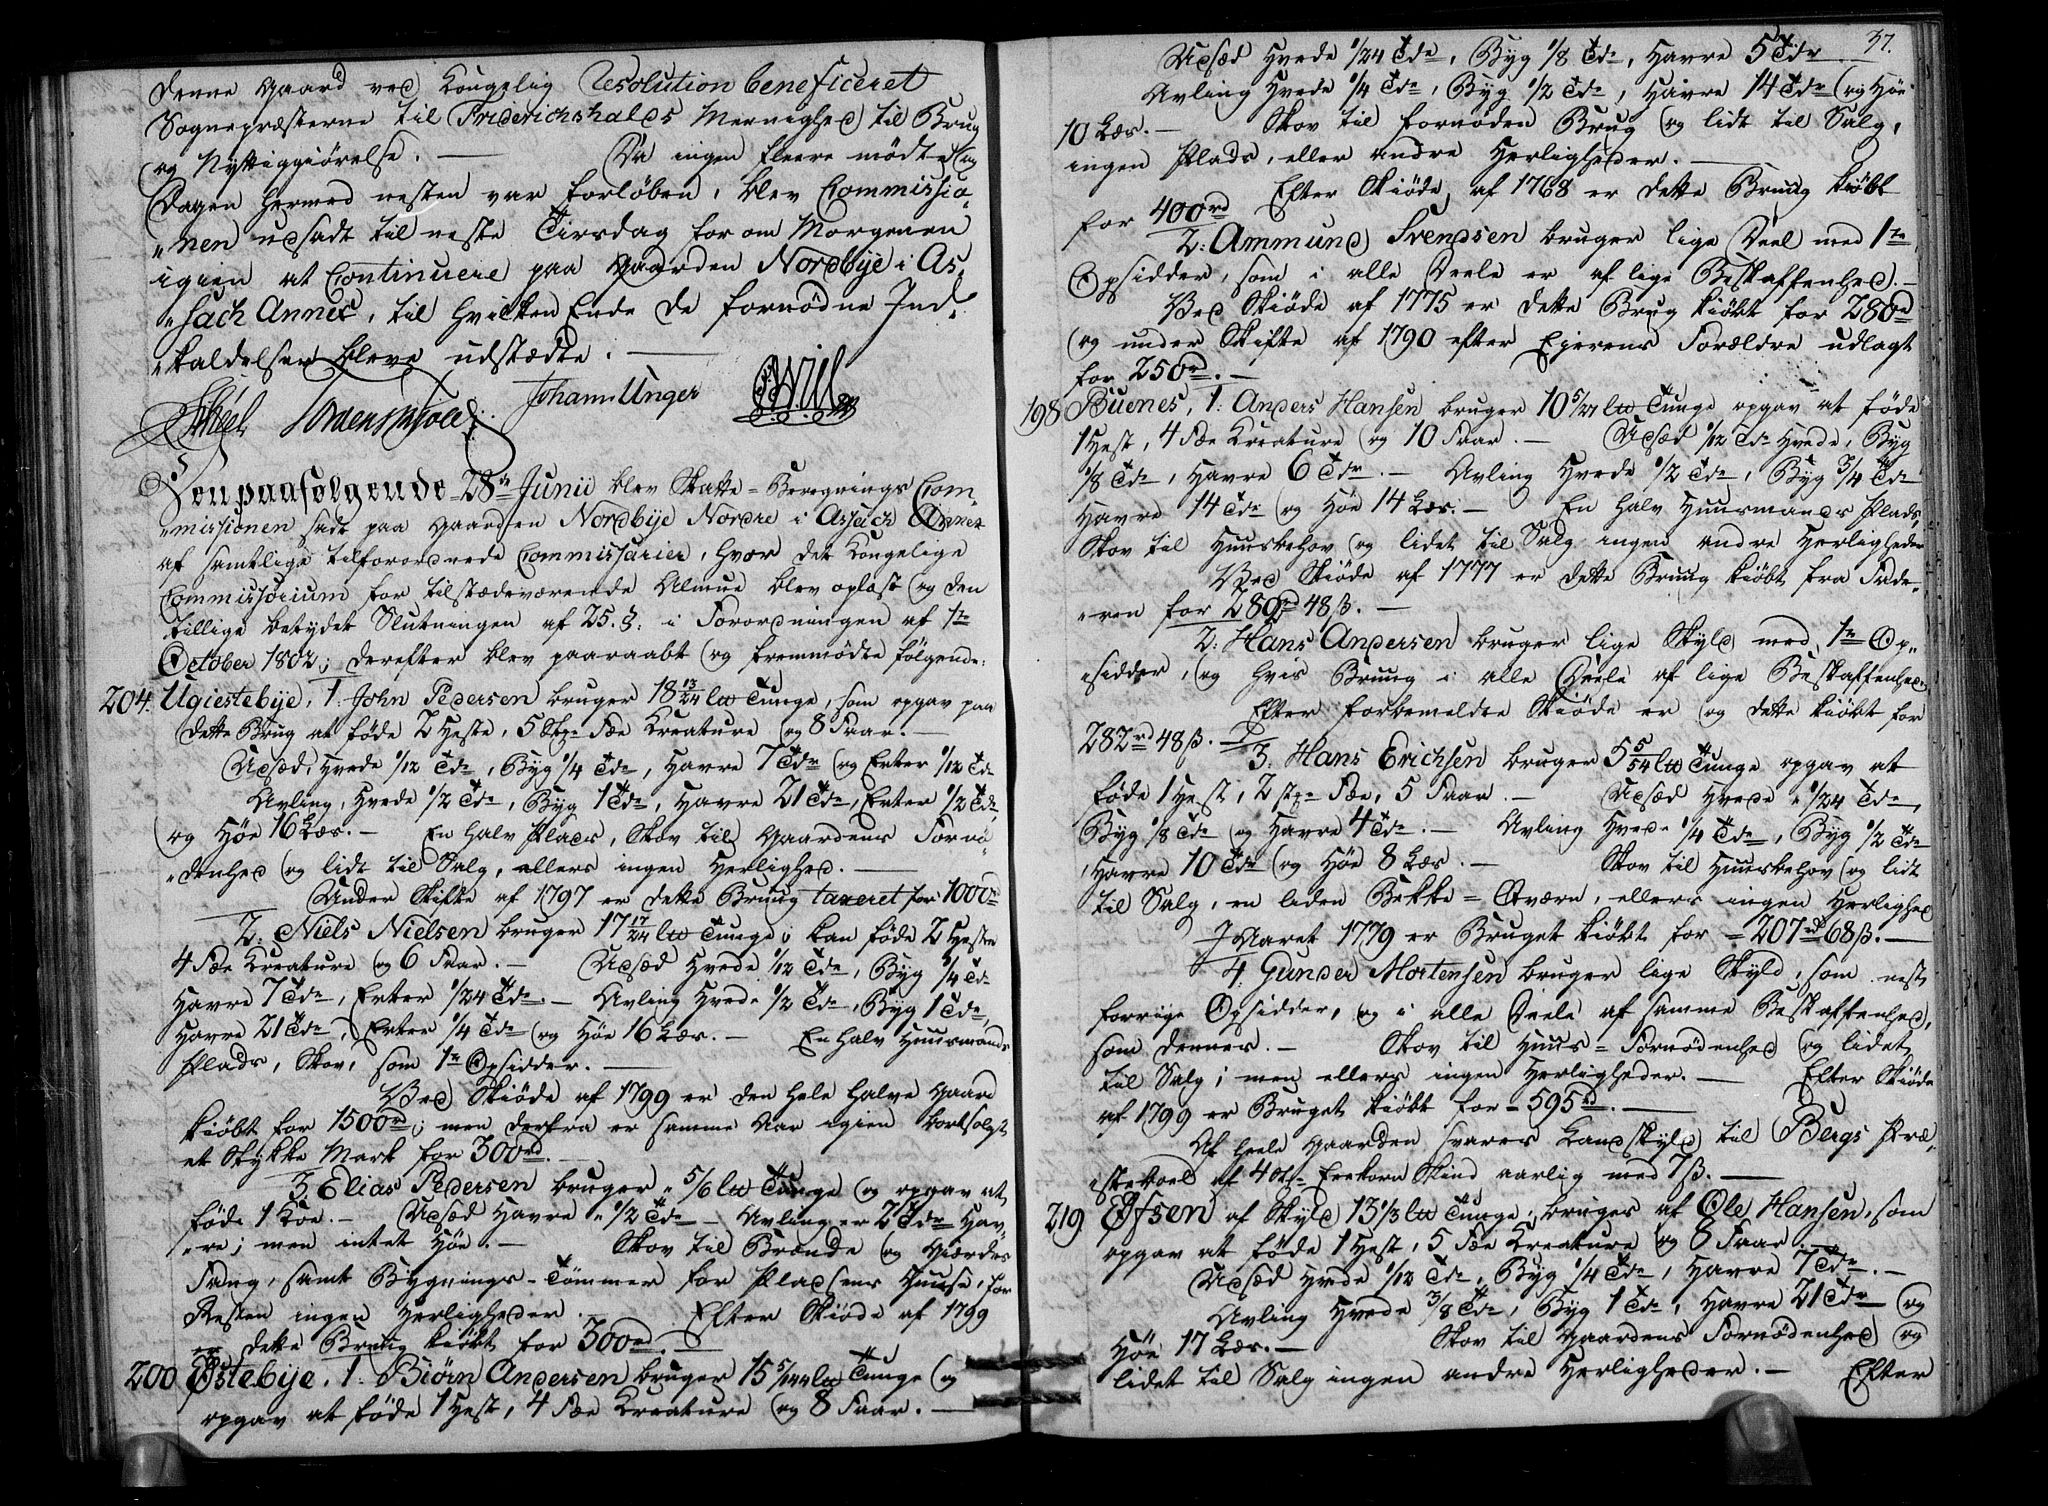 denne Gaard ved Kongelig Resolution beneficeret
Sognepræsterne til Friderichshalds Meenighed til Brug
og Nyttiggiørelse. — Da ingen fleere mødte og
Dagen hermed nesten var forløben, blev Commissio-
„nen udsadt til neste Tirsdag for om Morgenen
igien at Continuere paa Gaarden Nordbye i As-
„sach Annex, til hvilken Ende de fornødne Ind-
„kaldelser bleve udstædte. —
Johann Unger
Den paafølgende 28de Junii blev Skatte-Beregnings Com-
„missionen sadt paa Gaarden Nordbye Nordre i Assach Annex
af samtlige tilforordnede Commissarier, hvor det Kongelige
Commissorium for tilstædeværende Almue blev oplæst og den
tillige betydet Slutningen af 25. §. i Forordningen af 1te
October 1802; derefter blev paaraabt og fremmødte følgende:
204. Ugiestebye, 1. John Pedersen bruger 18 13/24 l℔ Tunge, som opgav paa
dette Brug at føde 2 Heste, 5 Stkr Fæe Creature og 8 Faar. —
Udsæd, Hvede 1/12 Tde, Byg 1/4 Tde, Havre 7 Tdr og Erter 1/12 Tde
Avling, Hvede 1/2 Tde, Byg 1 Tde, Havre 21 Tdr, Erter 1/2 Tde
og Høe 16 Læs. — En halv Plads, Skov til Gaardens Fornø-
„denhed og lidt til Salg, ellers ingen Herlighed. —
Under Skifte af 1797 er dette Bruug taxeret for 1000rd
2. Niels Nielsen bruger 17 17/24 l℔ Tunge; kan føde 2 Heste
4 Fæe Creature og 6 Faar. — Udsæd Hvede 1/12 Tde, Byg 1/4 Tde
Havre 7 Tdr, Erter 1/24 Tde. — Avling Hvede 1/2 Tde, Byg 1 Tde,
Havre 21 Tdr, Erter 1/4 Tde og Høe 16 Læs. — En halv Huusmands
Plads, Skov, som 1te Opsidder. —
Ved Skiøde af 1799 er den hele halve Gaard
kiøbt for 1500rd; men derfra er samme Aar igien bortsolgt
et Stykke Mark for 300rd. —
3. Elias Pedersen bruger „ 5/6 l℔ Tunge og opgav at
føde 1 Koe. — Udsæd Havre „ 1/2 Tde — Avling er 2 Tdr Hav-
„re; men intet Høe. — Skov til Brænde og Giærdes
Fang, samt Bygnings-Tømmer for Pladsens Huuse, for
Resten ingen Herligheder. — Efter Skiøde af 1799
er dette Bruug kiøbt for 300rd. —
200 Østebye, 1. Biørn Andersen bruger 15 5/144 l℔ Tunge og
opgav at føde 1 Hest, 4 Fæe Creature og 8 Faar. —
37.
Udsæd Hvede 1/24 Tde, Byg 1/8 Tde, Havre 5 Tdr
Avling Hvede 1/4 Tde, Byg 1/2 Tde, Havre 14 Tdr og Høe
10 Læs. — Skov til fornøden Brug og lidt til Salg,
ingen Plads, eller andre Herligheder. —
Efter Skiøde af 1768 er dette Bruug kiøbt
for 400rd
2: Ammund Svendsen bruger lige Deel med 1te
Opsidder, som i alle Deele er af lige Beskaffenhed. —
Ved Skiøde af 1775 er dette Brug kiøbt for 280rd
og under Skifte af 1790 efter Ejerens Forældre udlagt
for 250rd. —
198 Buenes, 1: Anders Hansen bruger 10 5/27 l℔ Tunge opgav at føde
1 Hest, 4 Fæe Creature og 10 Faar. — Udsæd 1/12 Tde Hvede, Byg
1/8 Tde, Havre 6 Tdr. — Avling Hvede 1/2 Tde, Byg 3/4 Tde
Havre 14 Tdr og Høe 14 Læs. — En halv Huusmands Plads,
Skov til Huusbehov og lidet til Salg ingen andre Herligheder
Ved Skiøde af 1777 er dette Bruug kiøbt fra Fade-
„ren for 280rd 48ß. —
2: Hans Andersen bruger lige Skyld med 1te Op-
„sidder, og hvis Bruug i alle Deele af lige Beskaffenhed,
Efter forbemeldte Skiøde er og dette kiøbt for
282rd 48ß. —
3. Hans Erichsen bruger 5 5/54 l℔ Tunge opgav at
føde 1 Hest, 2 Stkr Fæe, 5 Faar. — Udsæd Hvede „ 1/24 Tde,
Byg 1/8 Tde og Havre 4 Tdr. — Avling Hvede 1/4 Tde, Byg 1/2 Tde
Havre 10 Tdr og Høe 8 Læs. — Skov til Huusbehov og lidt
til Salg, en liden Bekke-Qværn, ellers ingen Herlighed
I Aaret 1779 er Bruget kiøbt for 207rd 68ß. —
4. Gunder Mortensen bruger lige Skyld, som nest
forrige Opsidder, og i alle Deele af samme Beskaffenhed,
som dennes. — Skov til Huus-Fornødenhed og lidet
til Salg; men ellers ingen Herligheder. — Efter Skiøde
af 1799 er Bruget kiøbt for 595rd. —
Af heele Gaarden svares Landskyld til Bergs Præ-
„steboel af 4 Ekorn Skind aarlig med 7ß. —
219 Efsen af Skyld 13 1/3 l℔ Tunge, bruges af Ole Hansen, som
opgav at føde 1 Hest, 5 Fæe Creature og 8 Faar. —
Udsæd Hvede 1/12 Tde, Byg 1/4 Tde, Havre 7 Tdr. —
Avling Hvede 3/8 Tde, Byg 1 Tde, Havre 21 Tdr og
Høe 17 Læs. — Skov til Gaardens Fornødenhed og
lidet til Salg ingen andre Herligheder. — Efter